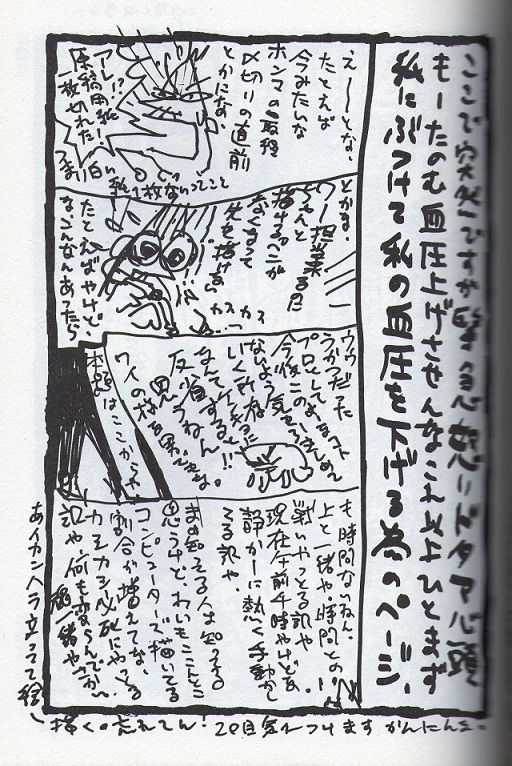 ここで突然ですが緊急怒りドタマ心頭
もーたのむ血圧上げさせんなこれ以上ひとまず
私にぶつけて私の血圧を下げる為のページ。
えーとな、
たとえば
今みたいな
ホンマの最終
〆切りの直前
とかにな
アレ!?
原稿用紙
一枚切れた!
つまり白い
紙1枚ないってこと
とかま、
ワー担当来るのに
ちゃんと
描けるペンが
なくなって
先を捨げよう
カスカスッ
たとえばやけど
なこんなんあったら
ウウ
うかつだった
プロとしてよ
今後
なるよう気をひきしめて
いく所存
なんて
反省するぞ!!
思うねん。
ワイの
本題はここからや
も時間ないねん。
上と一緒や。時間との
戦いやっとる訳や
現在午前4時やけどな。
静かーに熱く手動かし
てる訳や。
まぁ知ってる人は知ってる
思うけど、わいもここんとこ
コンピューターで描いてる
割合が増えてな、
カチカシ必死にやってる
訳や、何も変らんでコレ、
紙と一緒や
あイカンハラ立って絵
描くの忘れてん!2日目気ぃつけますかんにんな